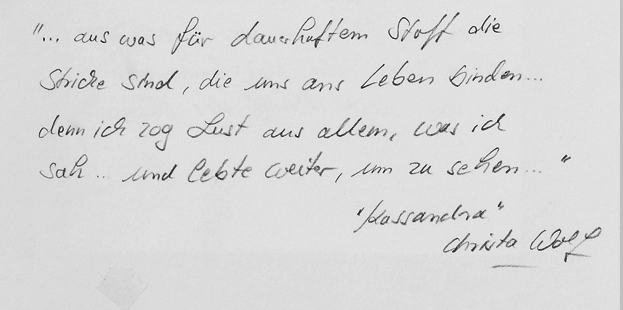 "... aus was für dauerhaftem Stoff die
Stricke sind, die uns ans Leben binden...
denn ich zog Lust aus allem, was ich
sah ... und lebte weiter, um zu sehen..."
"Kassandra"
Christa Wolf